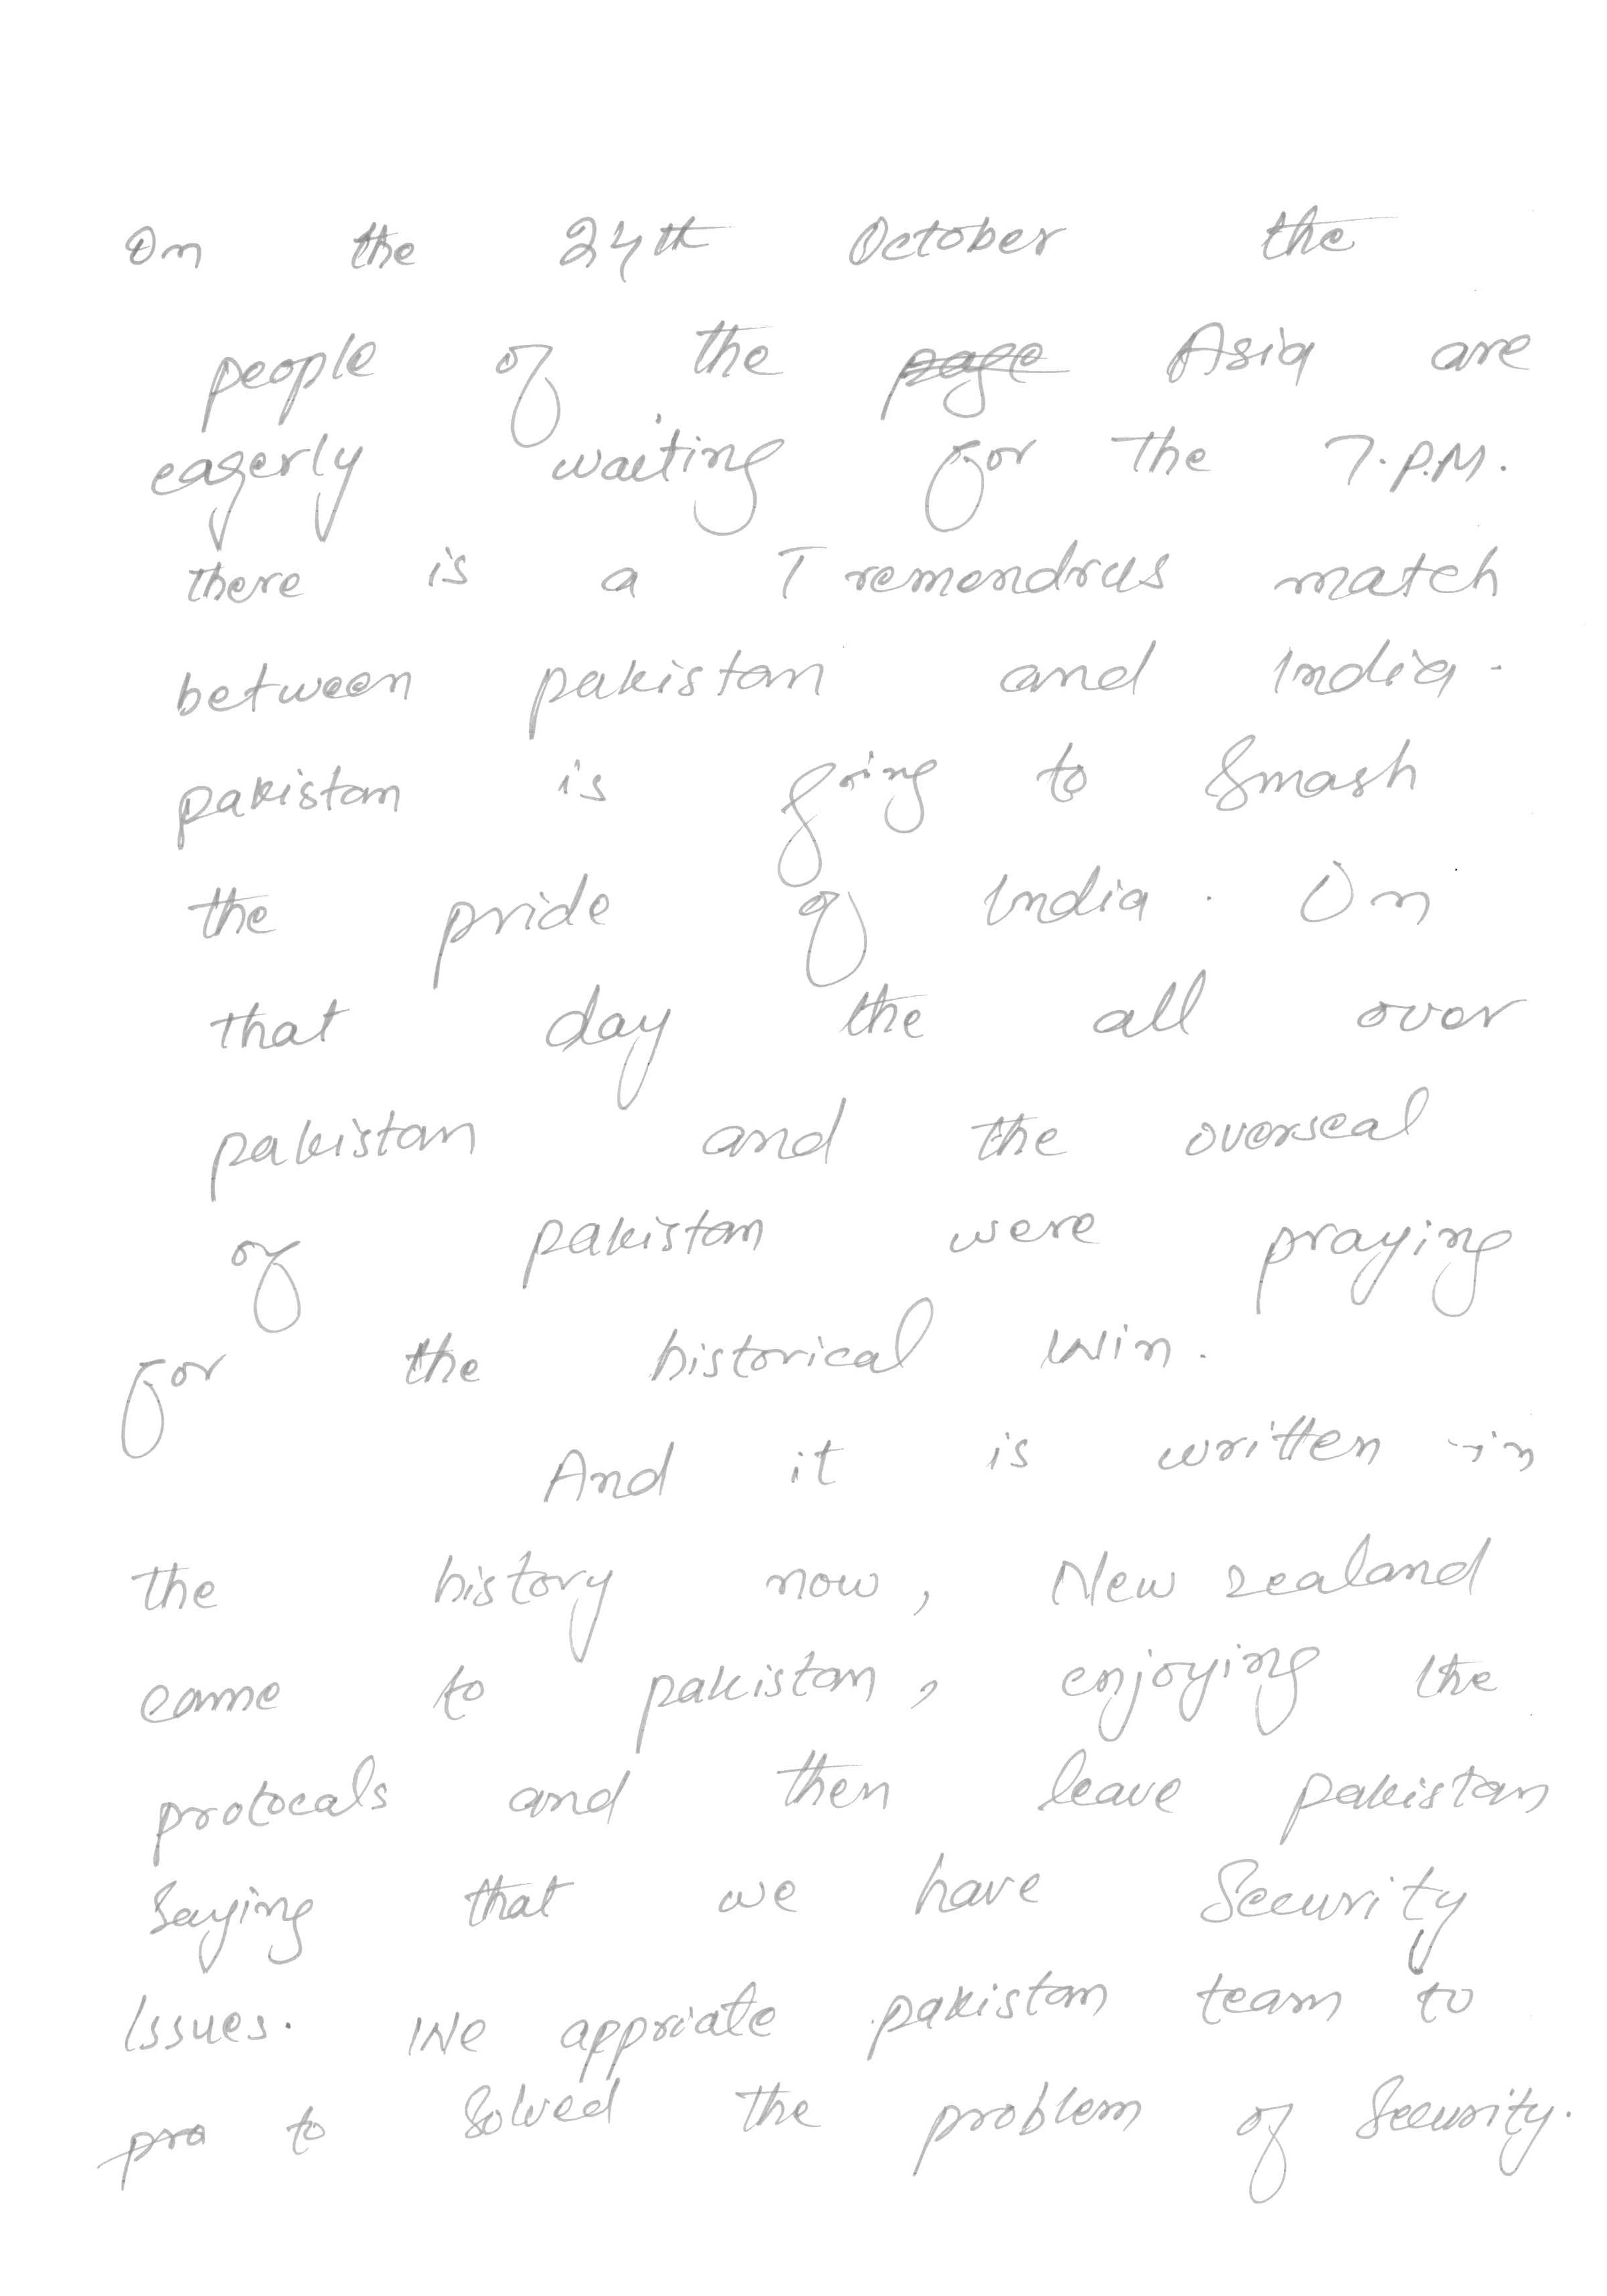 On the 24th October the
people of the page Asia are
eagerly waiting for the 7.P.M.
there is a Tremendrus match
between pakistan and India.
pakistan is going to Smash
the pride of India. On
that day the all over
pakistan and the overseal
of pakistan were praying
for the historical win.
And it is written in
the history now, New zealand
came to pakistan, enjoying the
protocals and then leave pakistan
saying that we have Security
Issues. We appriate pakistan team to
pro to Solved the problem of Security.